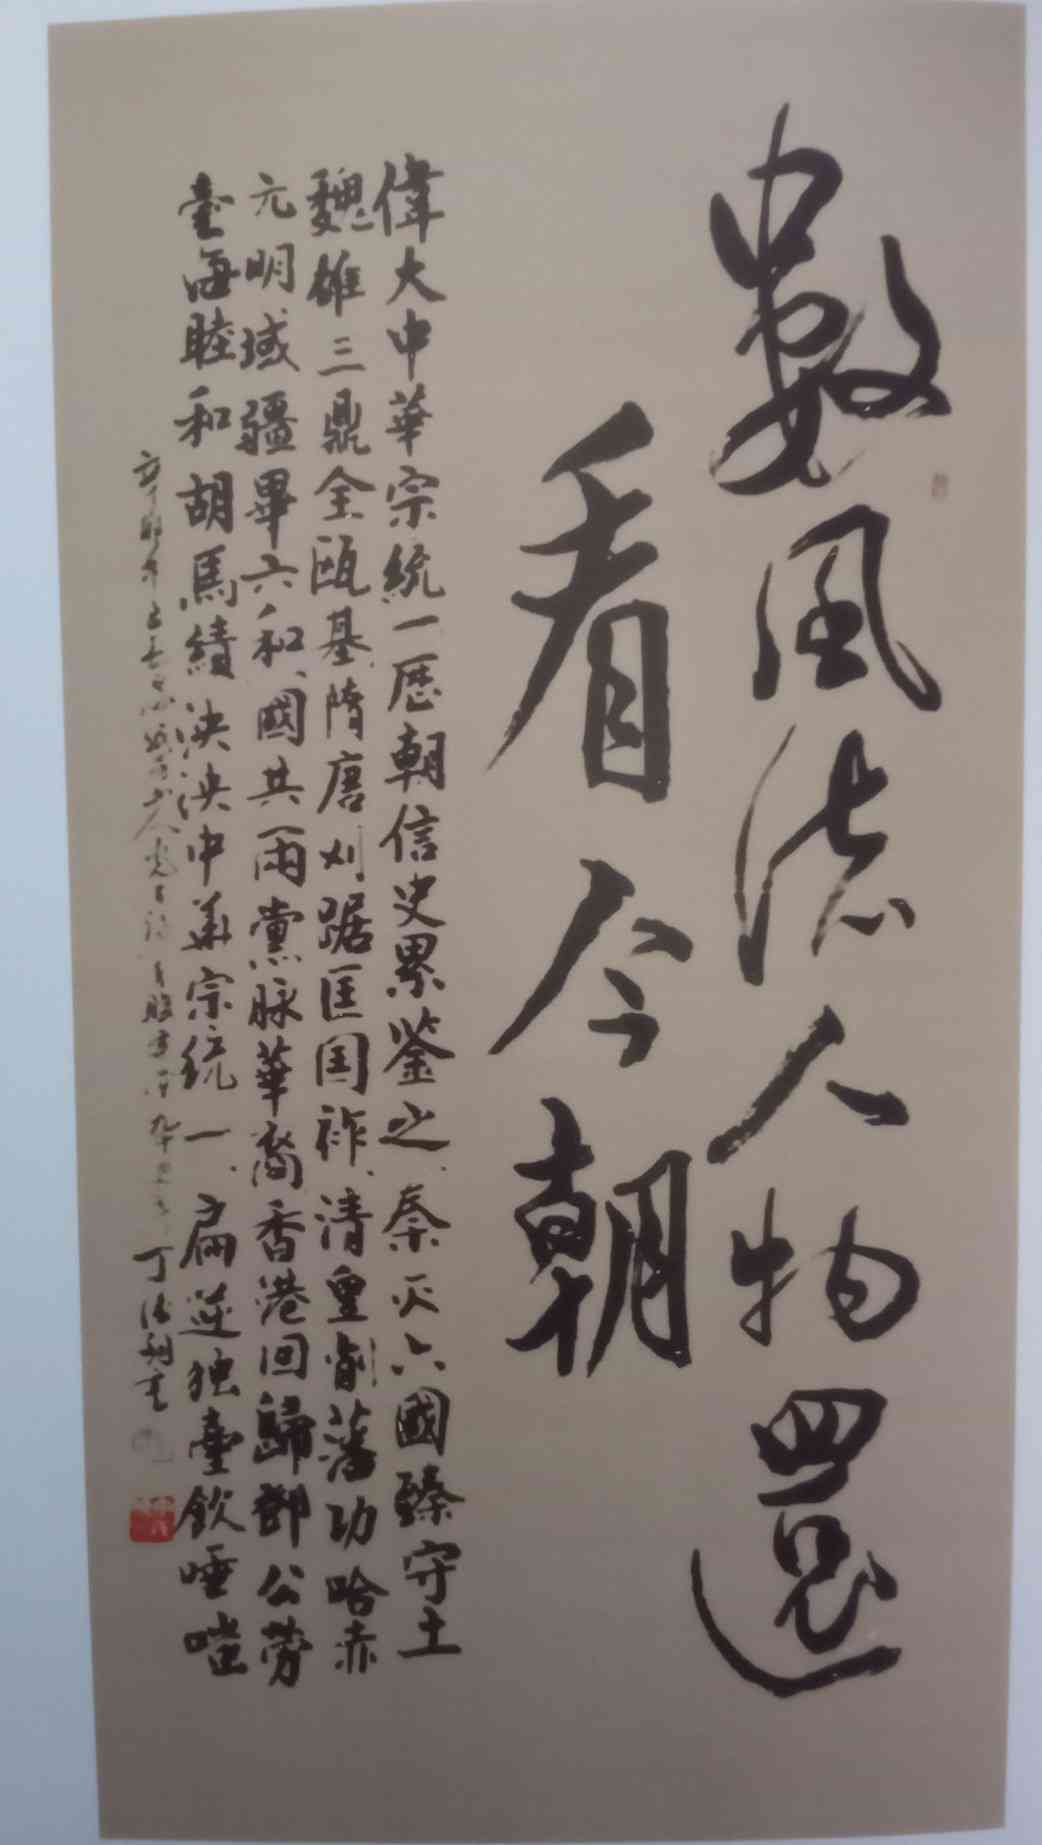 數風流人物還
看今朝
偉大中華宗統一歷朝信史累鉴之、秦灭六國臻守土
魏雄三鼎全瓯基、隋唐刈踞匡国祚、清皇削藩功哈赤
元明域疆畢六和、國共兩黨脉華裔香港回歸鄧公勞
臺海睦和胡馬績泱泱中華宗統一、扁逆独臺飲唾嗤
辛卯年